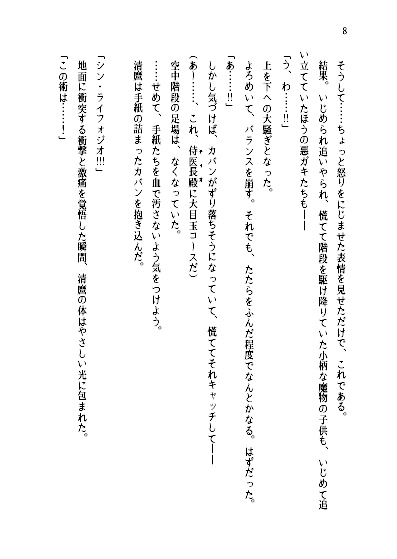 8
そうして……ちょっと怒りをにじませた表情を見せただけで、これである。
結果。いじめられ追いやられ、慌てて階段を駆け降りていた小柄な魔物の子供も、いじめて追
い立てていたほうの悪ガキたちも――
「う、わ……!!」
上を下への大騒ぎとなった。
よろめいて、バランスを崩す。それでも、たたらをふんだ程度でなんとかなる。はずだった。
「あ……!!」
しかし気づけば、カバンがずり落ちそうになっていて、慌ててそれキャッチして――
(あ――……、これ、侍医長殿に大目玉コースだ)
空中階段の足場は、なくなっていた。
……せめて、手紙たちを血で汚さないよう気をつけよう。
清麿は手紙の詰まったカバンを抱き込んだ。
「シン・ライフォジオ!!!」
地面に衝突する衝撃と激痛を覚悟した瞬間、清麿の体はやさしい光に包まれた。
「この術は……!」